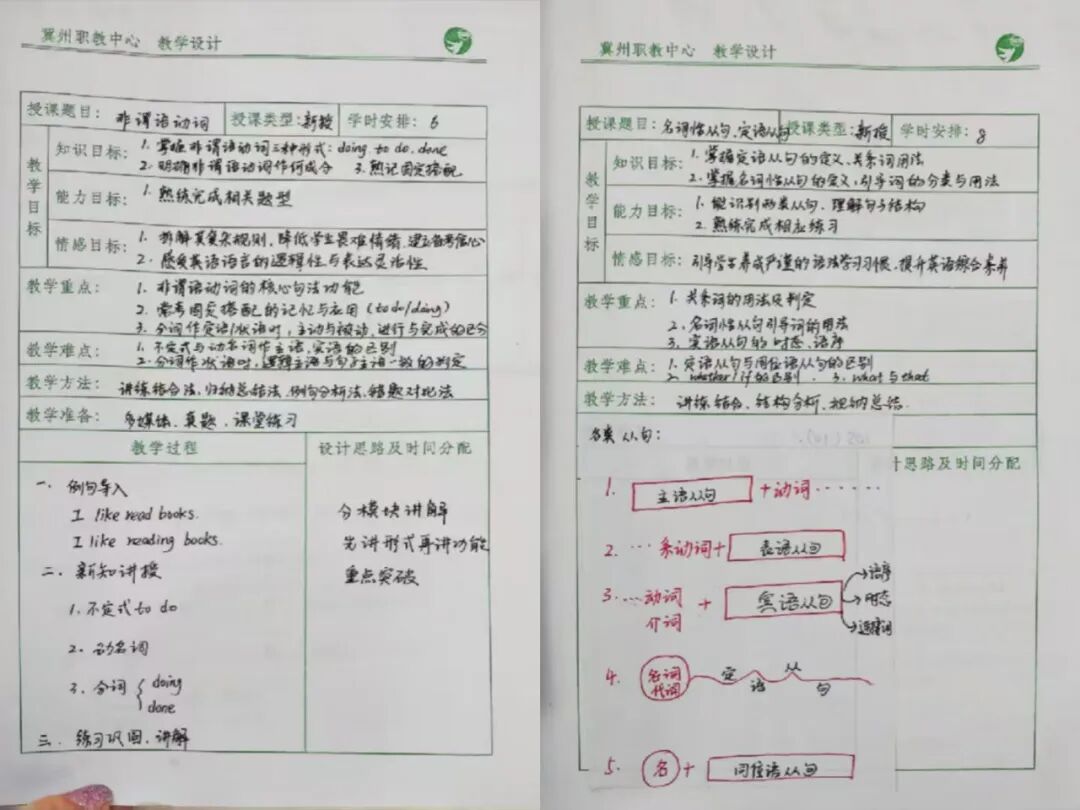 冀州职教中心 教学设计
授课题目: 非谓语动词 授课类型: 新授 学时安排: 6
教学目标
知识目标: 1. 掌握非谓语动词三种形式: doing to do. done
2. 明确非谓语动词作何成分 3. 熟记固定搭配
能力目标: 1. 熟练完成相关题型
情感目标: 1. 拆解其复杂规则, 降低学生畏难情绪, 建立备考信心
2. 感受英语语言的逻辑性与表达灵活性
教学重点: 1. 非谓语动词的核心句法功能
2. 常考固定搭配的记忆与应用 (to do/doing)
3. 分词作定语/状语时, 主动与被动, 进行与完成的区分
教学难点: 1. 不定式与动名词作主语, 宾语的区别
2. 分词作状语时, 逻辑主语与句子主语一致的判定
教学方法: 讲练结合法, 归纳总结法, 例句分析法, 错题对比法
教学准备: 多媒体、真题、课堂练习
教学过程 设计思路及时间分配
一. 例句导入
I like read books.
I like reading books.
二. 新知讲授
1. 不定式 to do
2. 动名词
3. 分词 { doing
done
三. 练习巩固、讲解
分模块讲解
先讲形式再讲功能
重点突破
冀州职教中心 教学设计
授课题目: 名词性从句、定语从句 授课类型: 新授 学时安排: 8
教学目标
知识目标: 1. 掌握定语从句的定义、关系词用法
2. 掌握名词性从句的定义, 引导词的分类与用法
能力目标: 1. 能识别两类从句, 理解句子结构
2. 熟练完成相应练习
情感目标: 引导学生养成严谨的语法学习习惯, 提升英语综合素养
教学重点: 1. 关系词的用法及判定
2. 名词性从句引导词的用法
3. 宾语从句的时态、语序
教学难点: 1. 定语从句与同位语从句的区别
2. whether/if的区别 . 3. what 与 that
教学方法: 讲练结合、结构分析、归纳总结.
各类从句:
计思路及时间分配
1. 主语从句 + 动词······
2. ··· 系动词 + 表语从句
3. ... 动词 介词 + 宾语从句 语序 时态 连接词
4. 名词 代词 定语从句
5. 名 + 同位语从句